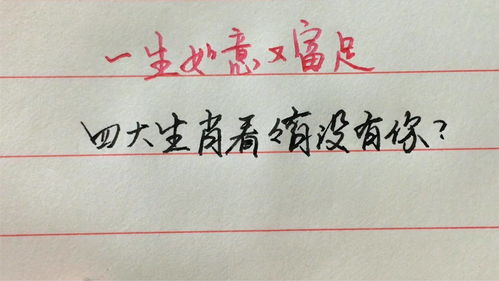 一生如意又富足
四大生肖看々有没有你?